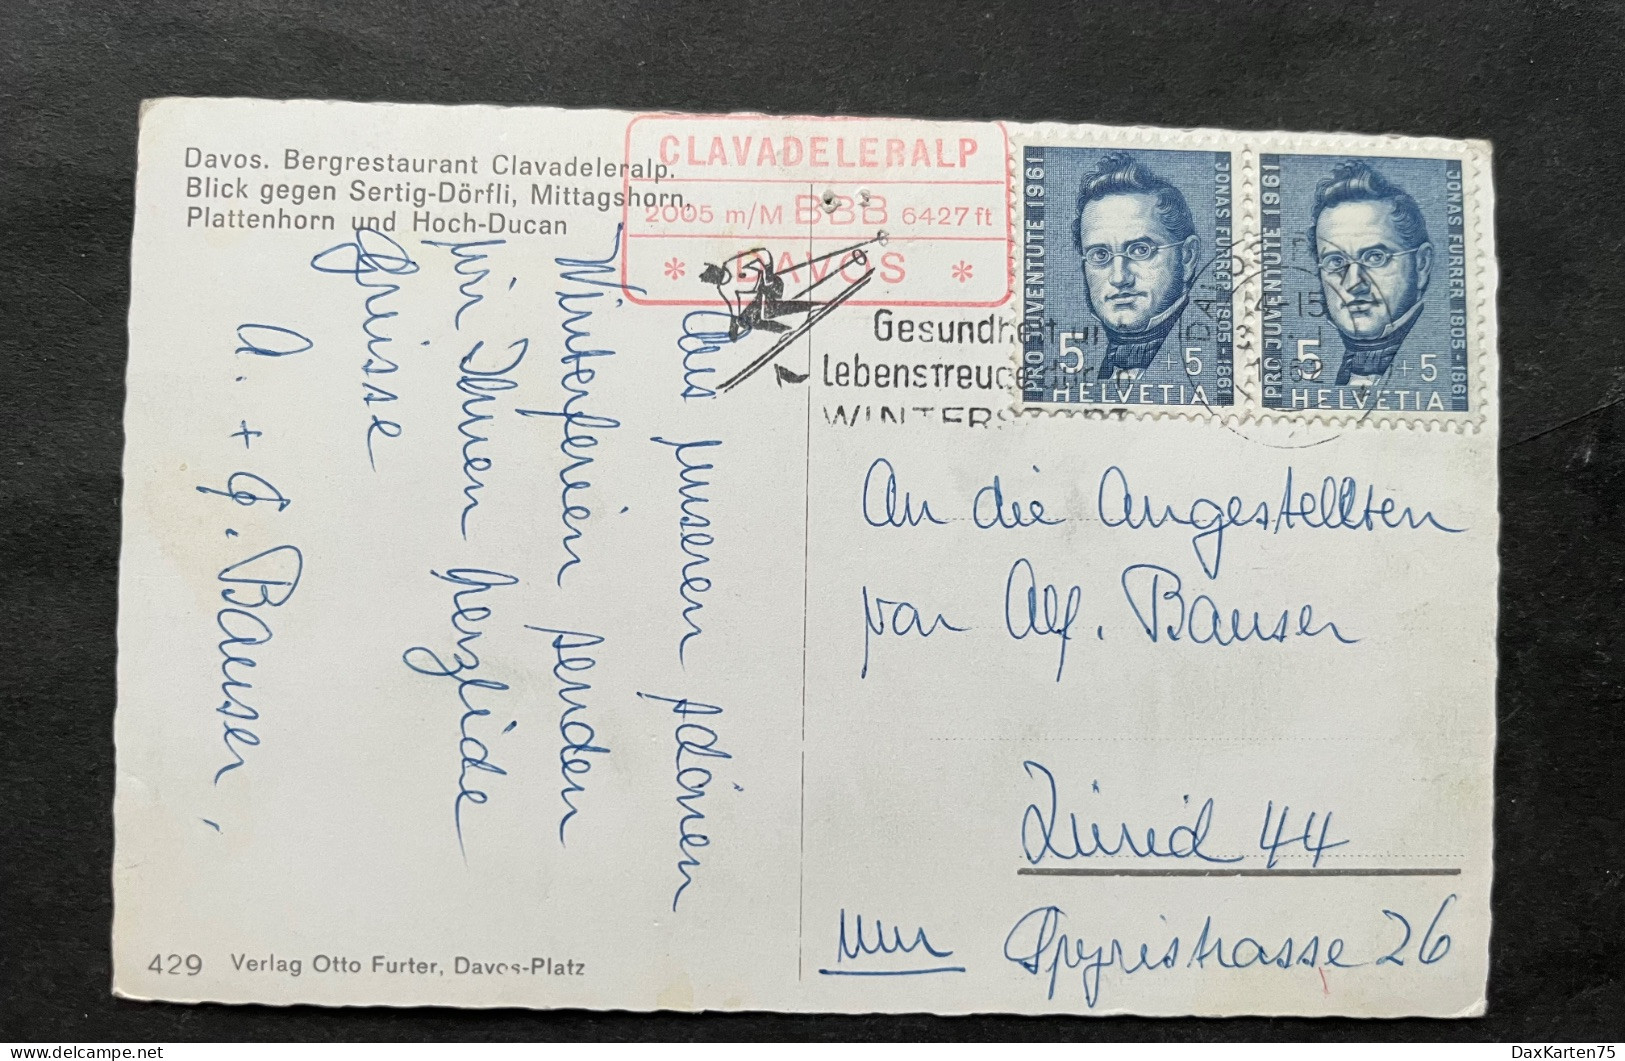 Davos. Bergrestaurant Clavadeleralp.
Blick gegen Sertig-Dörfli, Mittagshorn,
Plattenhorn und Hoch-Ducan
CLAVADELERALP
2005 m/M BBB 6427 ft
* DAVOS *
Gesundheit
Lebensfreude
WINTERSPORT
PRO JUVENTUTE 1961
JONAS FURRER 1805-1861
5 +5
HELVETIA
PRO JUVENTUTE 1961
JONAS FURRER 1805-1861
5 +5
HELVETIA
Aus unseren schönen
Winterferien senden
wir Ihnen herzliche
Grüsse
A. + G. Bauser,
An die Angestellten
von Alf. Bauser
Zürich 44
Spyristrasse 26
429 Verlag Otto Furter, Davos-Platz
DaxKarten75